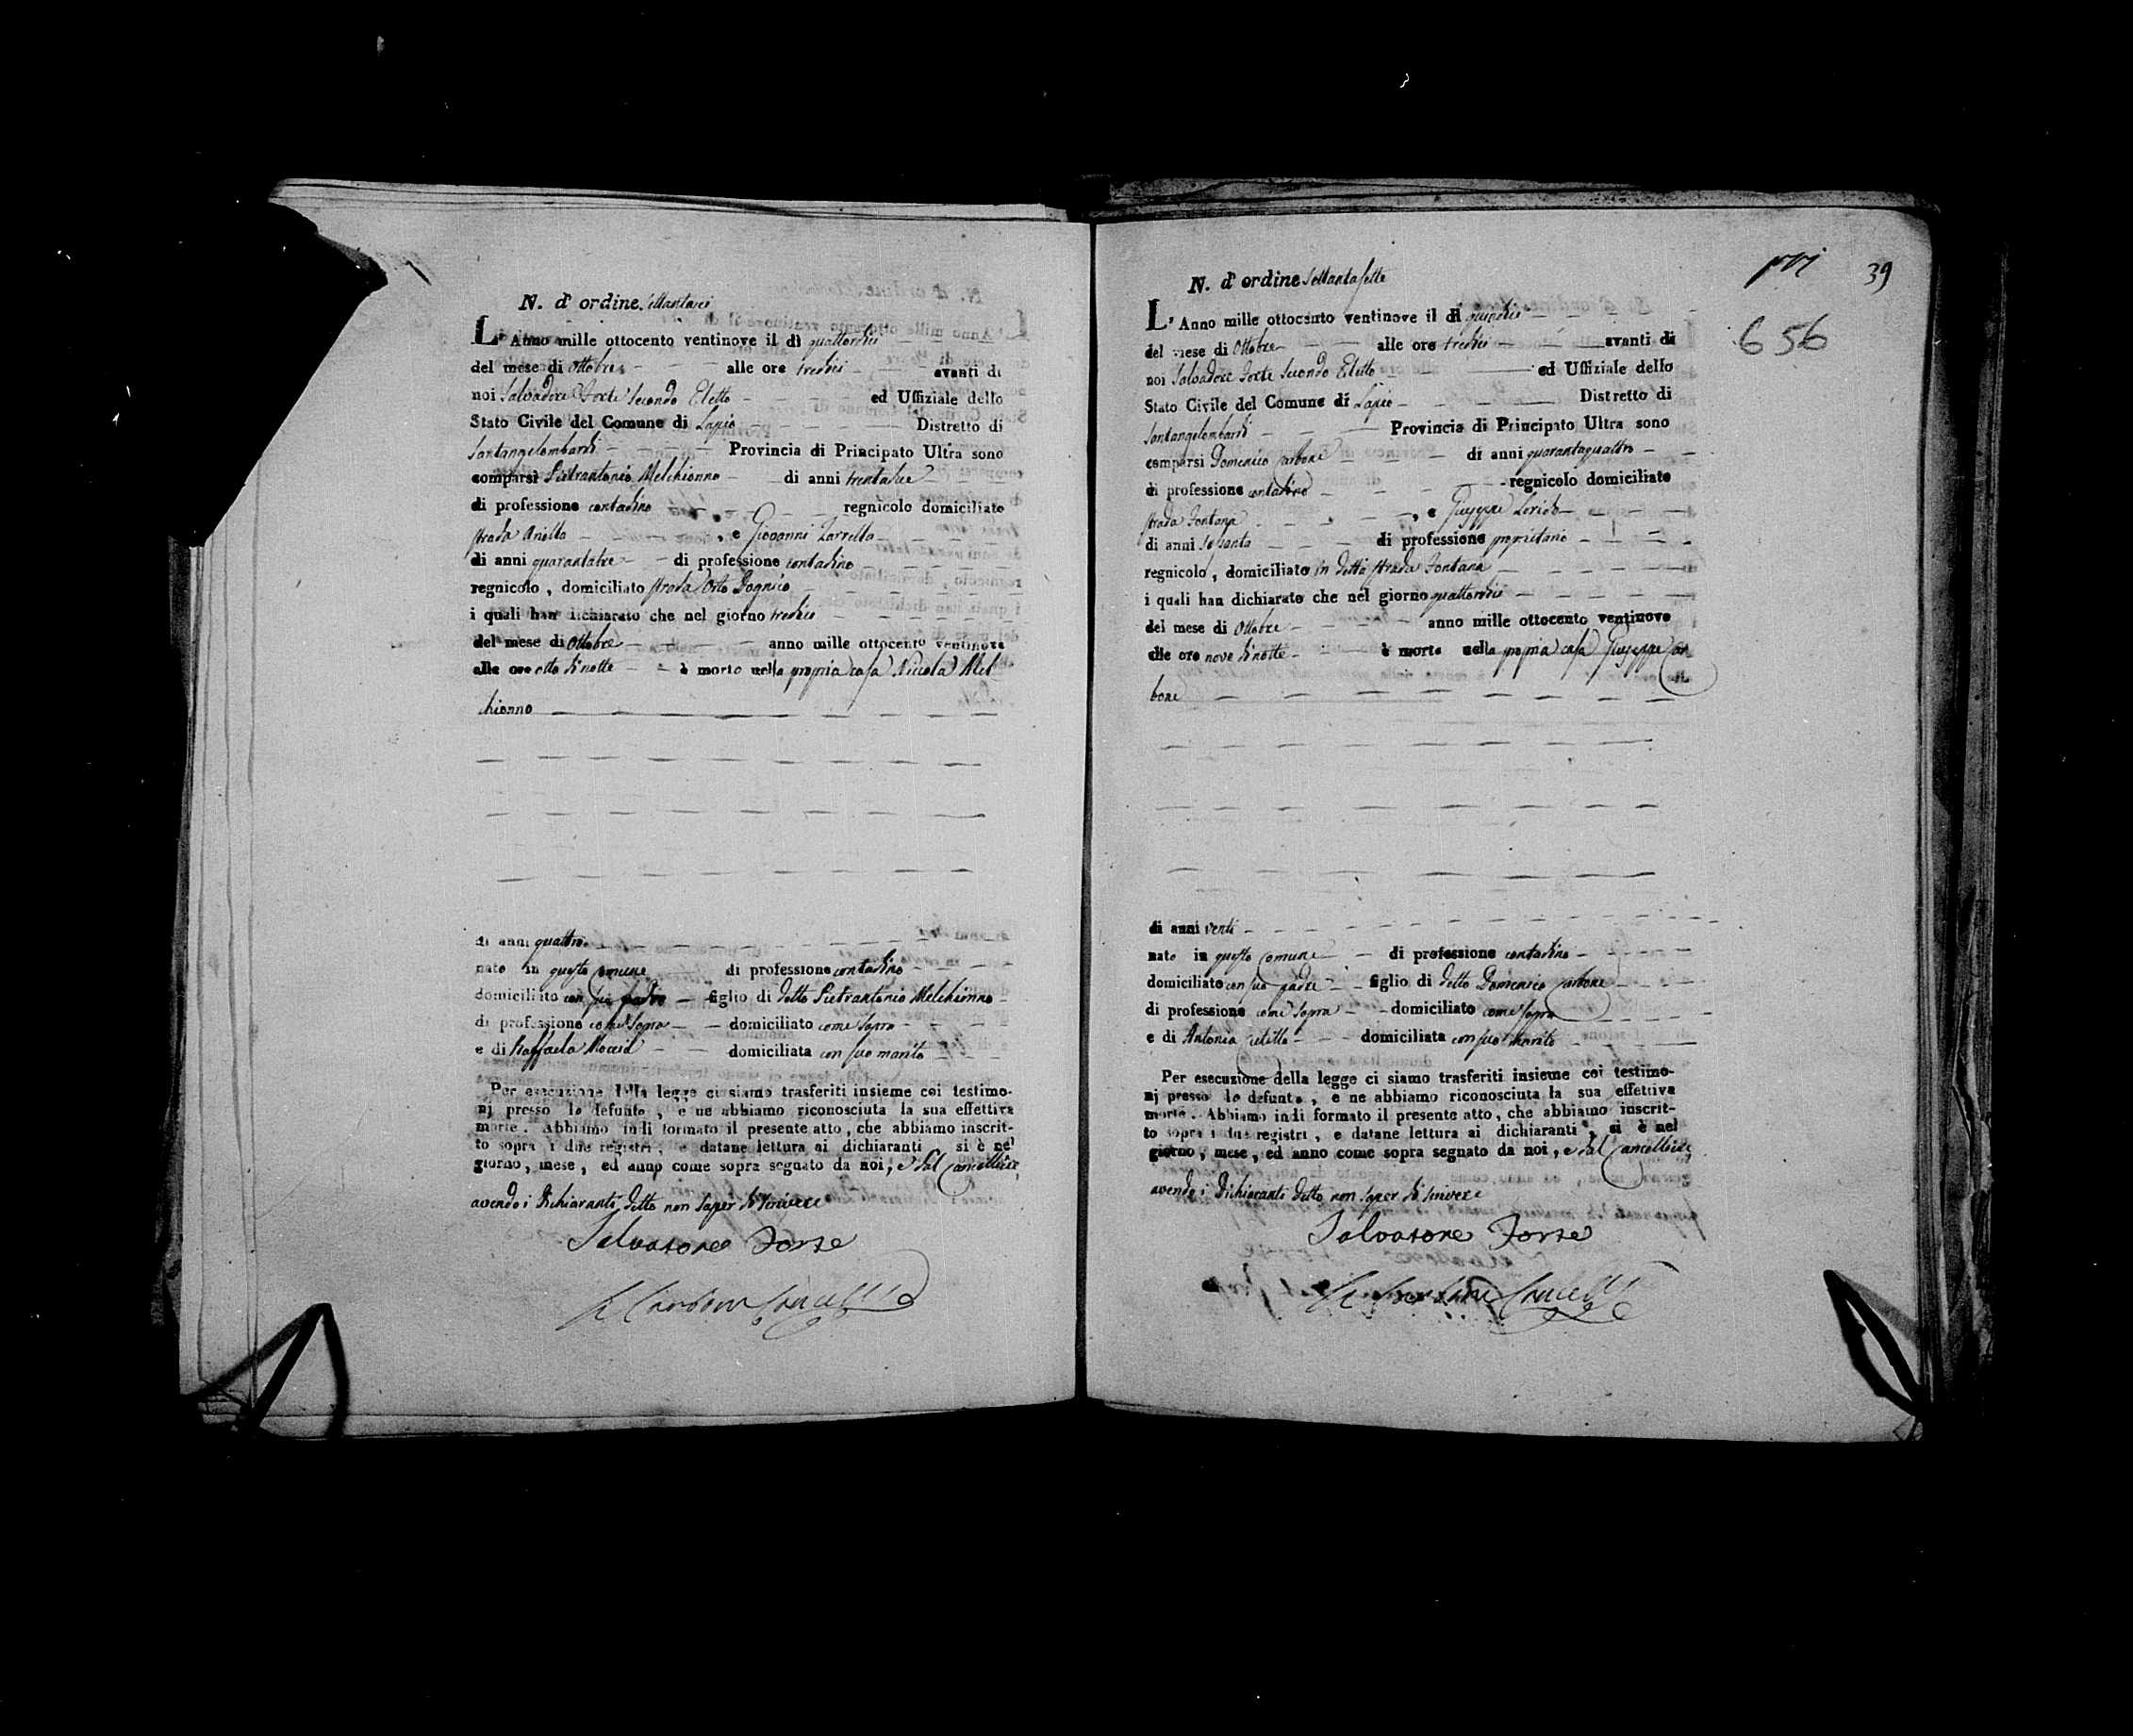 N. d'ordine Settantasei
L'Anno mille ottocento ventinove il dì quattordici
del mese di Ottobre alle ore tredici avanti di
noi Salvadore Forte Secondo Eletto ed Uffiziale dello
Stato Civile del Comune di Lapio Distretto di
Santangelombardi Provincia di Principato Ultra sono
comparsi Pietrantonio Melchionno di anni trentadue
di professione contadino regnicolo domiciliato
strada Aniello , e Giovanni Zarrella
di anni quarantatre di professione contadino
regnicolo , domiciliato strada Orto
i quali han dichiarato che nel giorno tredici
del mese di Ottobre anno mille ottocento ventinove
alle ore otto di notte è morto nella propria casa Niccola Mel
chionno
di anni quattro
nato in questo comune di professione contadino
domiciliato con suo padre figlio di detto Pietrantonio Melchionno
di professione come sopra domiciliato come sopra
e di Raffaela Moccia domiciliata con suo marito
Per esecuzione della legge ci siamo trasferiti insieme coi testimo-
nj presso lo defunto , e ne abbiamo riconosciuta la sua effettiva
morte . Abbiamo indi formato il presente atto , che abbiamo inscrit-
to sopra i due registri , e datane lettura ai dichiaranti si è nel
giorno , mese , ed anno come sopra segnato da noi , e dal Cancelliere
avendo i dichiaranti detto non saper di scrivere
Salvatore Forte
Carbone Cancelle
39
656
N. d'ordine Settantasette
L'Anno mille ottocento ventinove il dì quindici
del mese di Ottobre alle ore tredici avanti di
noi Salvadore Forte Secondo Eletto ed Uffiziale dello
Stato Civile del Comune di Lapio Distretto di
Santangelombardi Provincia di Principato Ultra sono
comparsi Domenico Carbone di anni quarantaquattro
di professione contadino regnicolo domiciliato
strada Fontana , e Giuseppe
di anni sessanta di professione proprietario
regnicolo , domiciliato in detta strada Fontana
i quali han dichiarato che nel giorno quattordici
del mese di Ottobre anno mille ottocento ventinove
alle ore nove di notte è morto nella propria casa Giuseppe Car
bone
di anni venti
nato in questo comune di professione contadino
domiciliato con suo padre figlio di detto Domenico Carbone
di professione come sopra domiciliato come sopra
e di Antonia domiciliata con suo marito
Per esecuzione della legge ci siamo trasferiti insieme coi testimo-
nj presso lo defunto , e ne abbiamo riconosciuta la sua effettiva
morte . Abbiamo indi formato il presente atto , che abbiamo inscrit-
to sopra i due registri , e datane lettura ai dichiaranti , si è nel
giorno , mese , ed anno come sopra segnato da noi , e dal Cancelliere
avendo i dichiaranti detto non saper di scrivere
Salvatore Forte
Carbone Cancelle